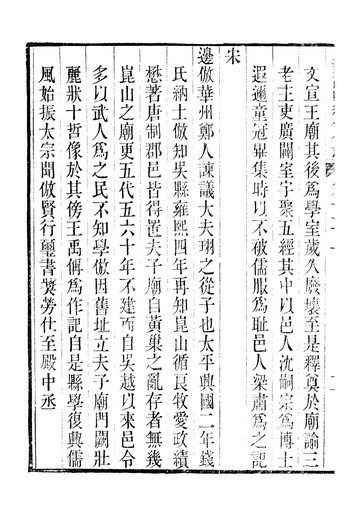 文宣王廟其後爲學室歲久廢壞至是釋奠於廟諭三
老主吏廣闢室宇聚五經其中以邑人沈嗣宗爲博士
遐邇童冠畢集時以不被儒服爲耻邑人梁肅爲之記
宋
邊倣華州鄭人諫議大夫珝之從子也太平興國二年錢
氏納土倣知吳縣雍熙四年再知崑山循良牧愛政績
懋著唐制郡邑皆得置夫子廟自黃巢之亂存者無幾
崑山之廟更五代五六十年不建而自吳越以來邑令
多以武人爲之民不知學倣因舊址立夫子廟門闕壯
麗狀十哲像於其傍王禹偁爲作記自是縣學復興儒
風始振太宗聞倣賢行璽書奬勞仕至殿中丞